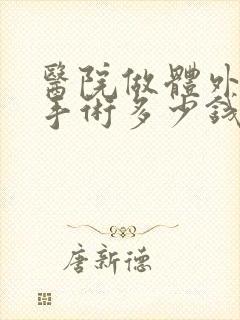 醫院做體外
手術多少錢
唐新德